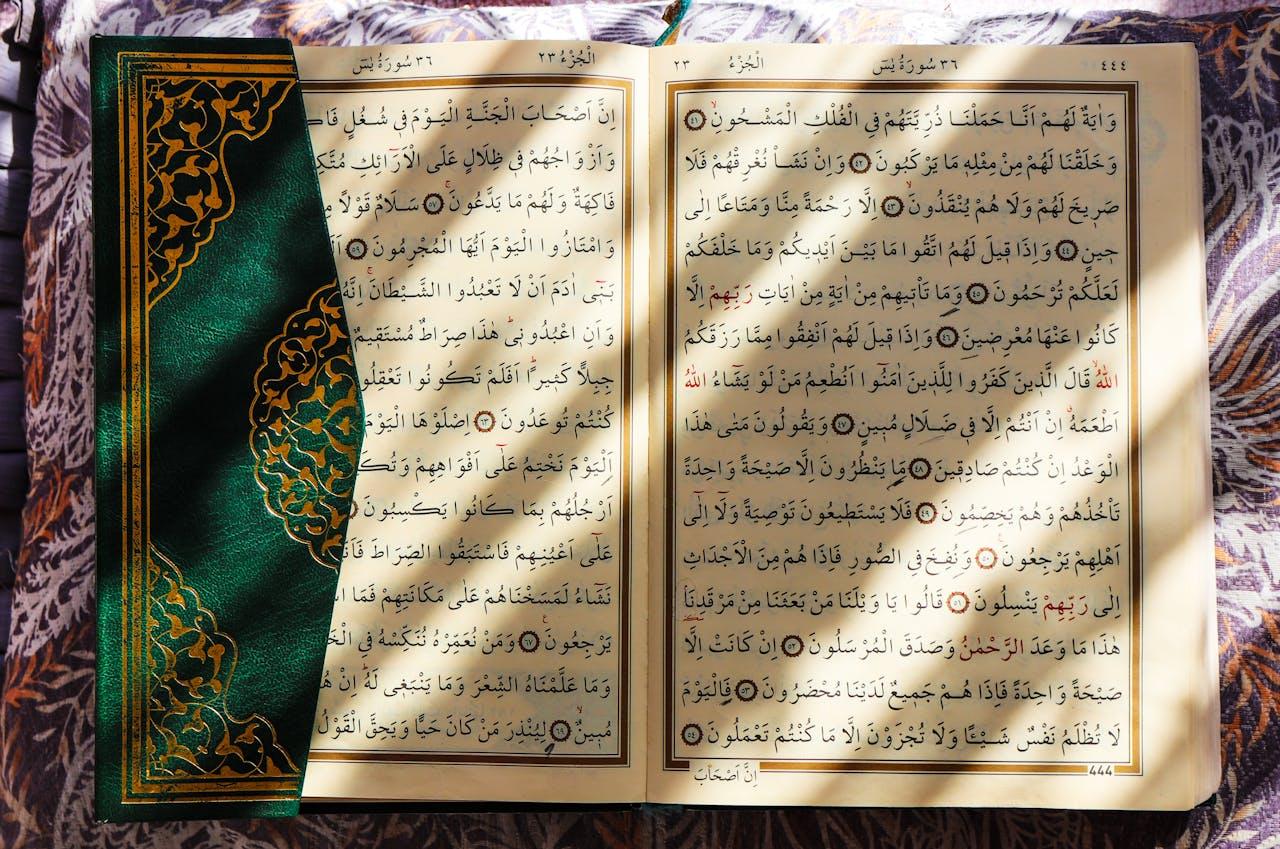 ٤٤٤ ٣٦ سُورَةُ يٰسٓ اَلْجُزْءُ ٢٣
وَاٰيَةٌ لَهُمْ اَنَّا حَمَلْنَا ذُرِّيَّتَهُمْ فِي الْفُلْكِ الْمَشْحُونِۙ ﴿٤١﴾
وَخَلَقْنَا لَهُمْ مِنْ مِثْلِه۪ مَا يَرْكَبُونَ ﴿٤٢﴾ وَاِنْ نَشَأْ نُغْرِقْهُمْ فَلَا
صَر۪يخَ لَهُمْ وَلَا هُمْ يُنْقَذُونَۙ ﴿٤٣﴾ اِلَّا رَحْمَةً مِنَّا وَمَتَاعًا اِلٰى
ح۪ينٍ ﴿٤٤﴾ وَاِذَا ق۪يلَ لَهُمُ اتَّقُوا مَا بَيْنَ اَيْد۪يكُمْ وَمَا خَلْفَكُمْ
لَعَلَّكُمْ تُرْحَمُونَ ﴿٤٥﴾ وَمَا تَأْت۪يهِمْ مِنْ اٰيَةٍ مِنْ اٰيَاتِ رَبِّهِمْ اِلَّا
كَانُوا عَنْهَا مُعْرِض۪ينَ ﴿٤٦﴾ وَاِذَا ق۪يلَ لَهُمْ اَنْفِقُوا مِمَّا رَزَقَكُمُ
اللّٰهُۙ قَالَ الَّذ۪ينَ كَفَرُوا لِلَّذ۪ينَ اٰمَنُٓوا اَنُطْعِمُ مَنْ لَوْ يَشَٓاءُ اللّٰهُ
اَطْعَمَهُۗ اِنْ اَنْتُمْ اِلَّا ف۪ي ضَلَالٍ مُب۪ينٍ ﴿٤٧﴾ وَيَقُولُونَ مَتٰى هٰذَا
الْوَعْدُ اِنْ كُنْتُمْ صَادِق۪ينَ ﴿٤٨﴾ مَا يَنْظُرُونَ اِلَّا صَيْحَةً وَاحِدَةً
تَأْخُذُهُمْ وَهُمْ يَخِصِّمُونَ ﴿٤٩﴾ فَلَا يَسْتَط۪يعُونَ تَوْصِيَةً وَلَٓا اِلٰٓى
اَهْلِهِمْ يَرْجِعُونَ۟ ﴿٥٠﴾ وَنُفِخَ فِي الصُّورِ فَاِذَا هُمْ مِنَ الْاَجْدَاثِ
اِلٰى رَبِّهِمْ يَنْسِلُونَ ﴿٥١﴾ قَالُوا يَا وَيْلَنَا مَنْ بَعَثَنَا مِنْ مَرْقَدِنَا
هٰذَا مَا وَعَدَ الرَّحْمٰنُ وَصَدَقَ الْمُرْسَلُونَ ﴿٥٢﴾ اِنْ كَانَتْ اِلَّا
صَيْحَةً وَاحِدَةً فَاِذَا هُمْ جَم۪يعٌ لَدَيْنَا مُحْضَرُونَ ﴿٥٣﴾ فَالْيَوْمَ
لَا تُظْلَمُ نَفْسٌ شَيْـًٔا وَلَا تُجْزَوْنَ اِلَّا مَا كُنْتُمْ تَعْمَلُونَ ﴿٥٤﴾
444 اِنَّ اَصْحَابَ
اَلْجُزْءُ ٢٣ ٣٦ سُورَةُ يٰسٓ
اِنَّ اَصْحَابَ الْجَنَّةِ الْيَوْمَ ف۪ي شُغُلٍ
وَاَزْوَاجُهُمْ ف۪ي ظِلَالٍ عَلَى الْاَرَٓائِكِ
فَاكِهَةٌ وَلَهُمْ مَا يَدَّعُونَۚ ﴿٥٧﴾ سَلَامٌ قَوْلًا
وَامْتَازُوا الْيَوْمَ اَيُّهَا الْمُجْرِمُونَ ﴿٥٩﴾
بَن۪ٓي اٰدَمَ اَنْ لَا تَعْبُدُوا الشَّيْطَانَۚ اِنَّهُ
وَاَنِ اعْبُدُون۪يۜ هٰذَا صِرَاطٌ مُسْتَق۪يمٌ
جِبِلًّا كَث۪يرًاۜ اَفَلَمْ تَكُونُوا تَعْقِلُو
كُنْتُمْ تُوعَدُونَ ﴿٦٣﴾ اِصْلَوْهَا الْيَوْمَ
اَلْيَوْمَ نَخْتِمُ عَلٰٓى اَفْوَاهِهِمْ وَتُكَ
اَرْجُلُهُمْ بِمَا كَانُوا يَكْسِبُونَ
عَلٰٓى اَعْيُنِهِمْ فَاسْتَبَقُوا الصِّرَاطَ
نَشَٓاءُ لَمَسَخْنَاهُمْ عَلٰى مَكَانَتِهِمْ فَمَا
يَرْجِعُونَ۟ ﴿٦٧﴾ وَمَنْ نُعَمِّرْهُ نُنَكِّسْهُ فِي
وَمَا عَلَّمْنَاهُ الشِّعْرَ وَمَا يَنْبَغ۪ي لَهُۜ اِنْ
مُب۪ينٌۙ ﴿٦٩﴾ لِيُنْذِرَ مَنْ كَانَ حَيًّا وَيَحِقَّ الْقَوْلُ